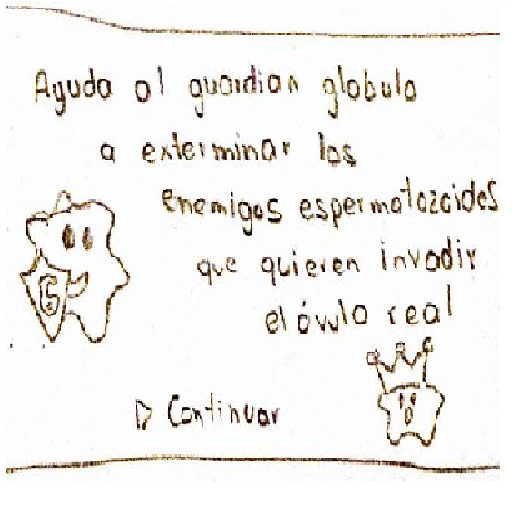 Ayuda al guardian globulo
a exterminar los
enemigos espermatozoides
que quieren invadir
el óvulo real
G
▷ Continuar